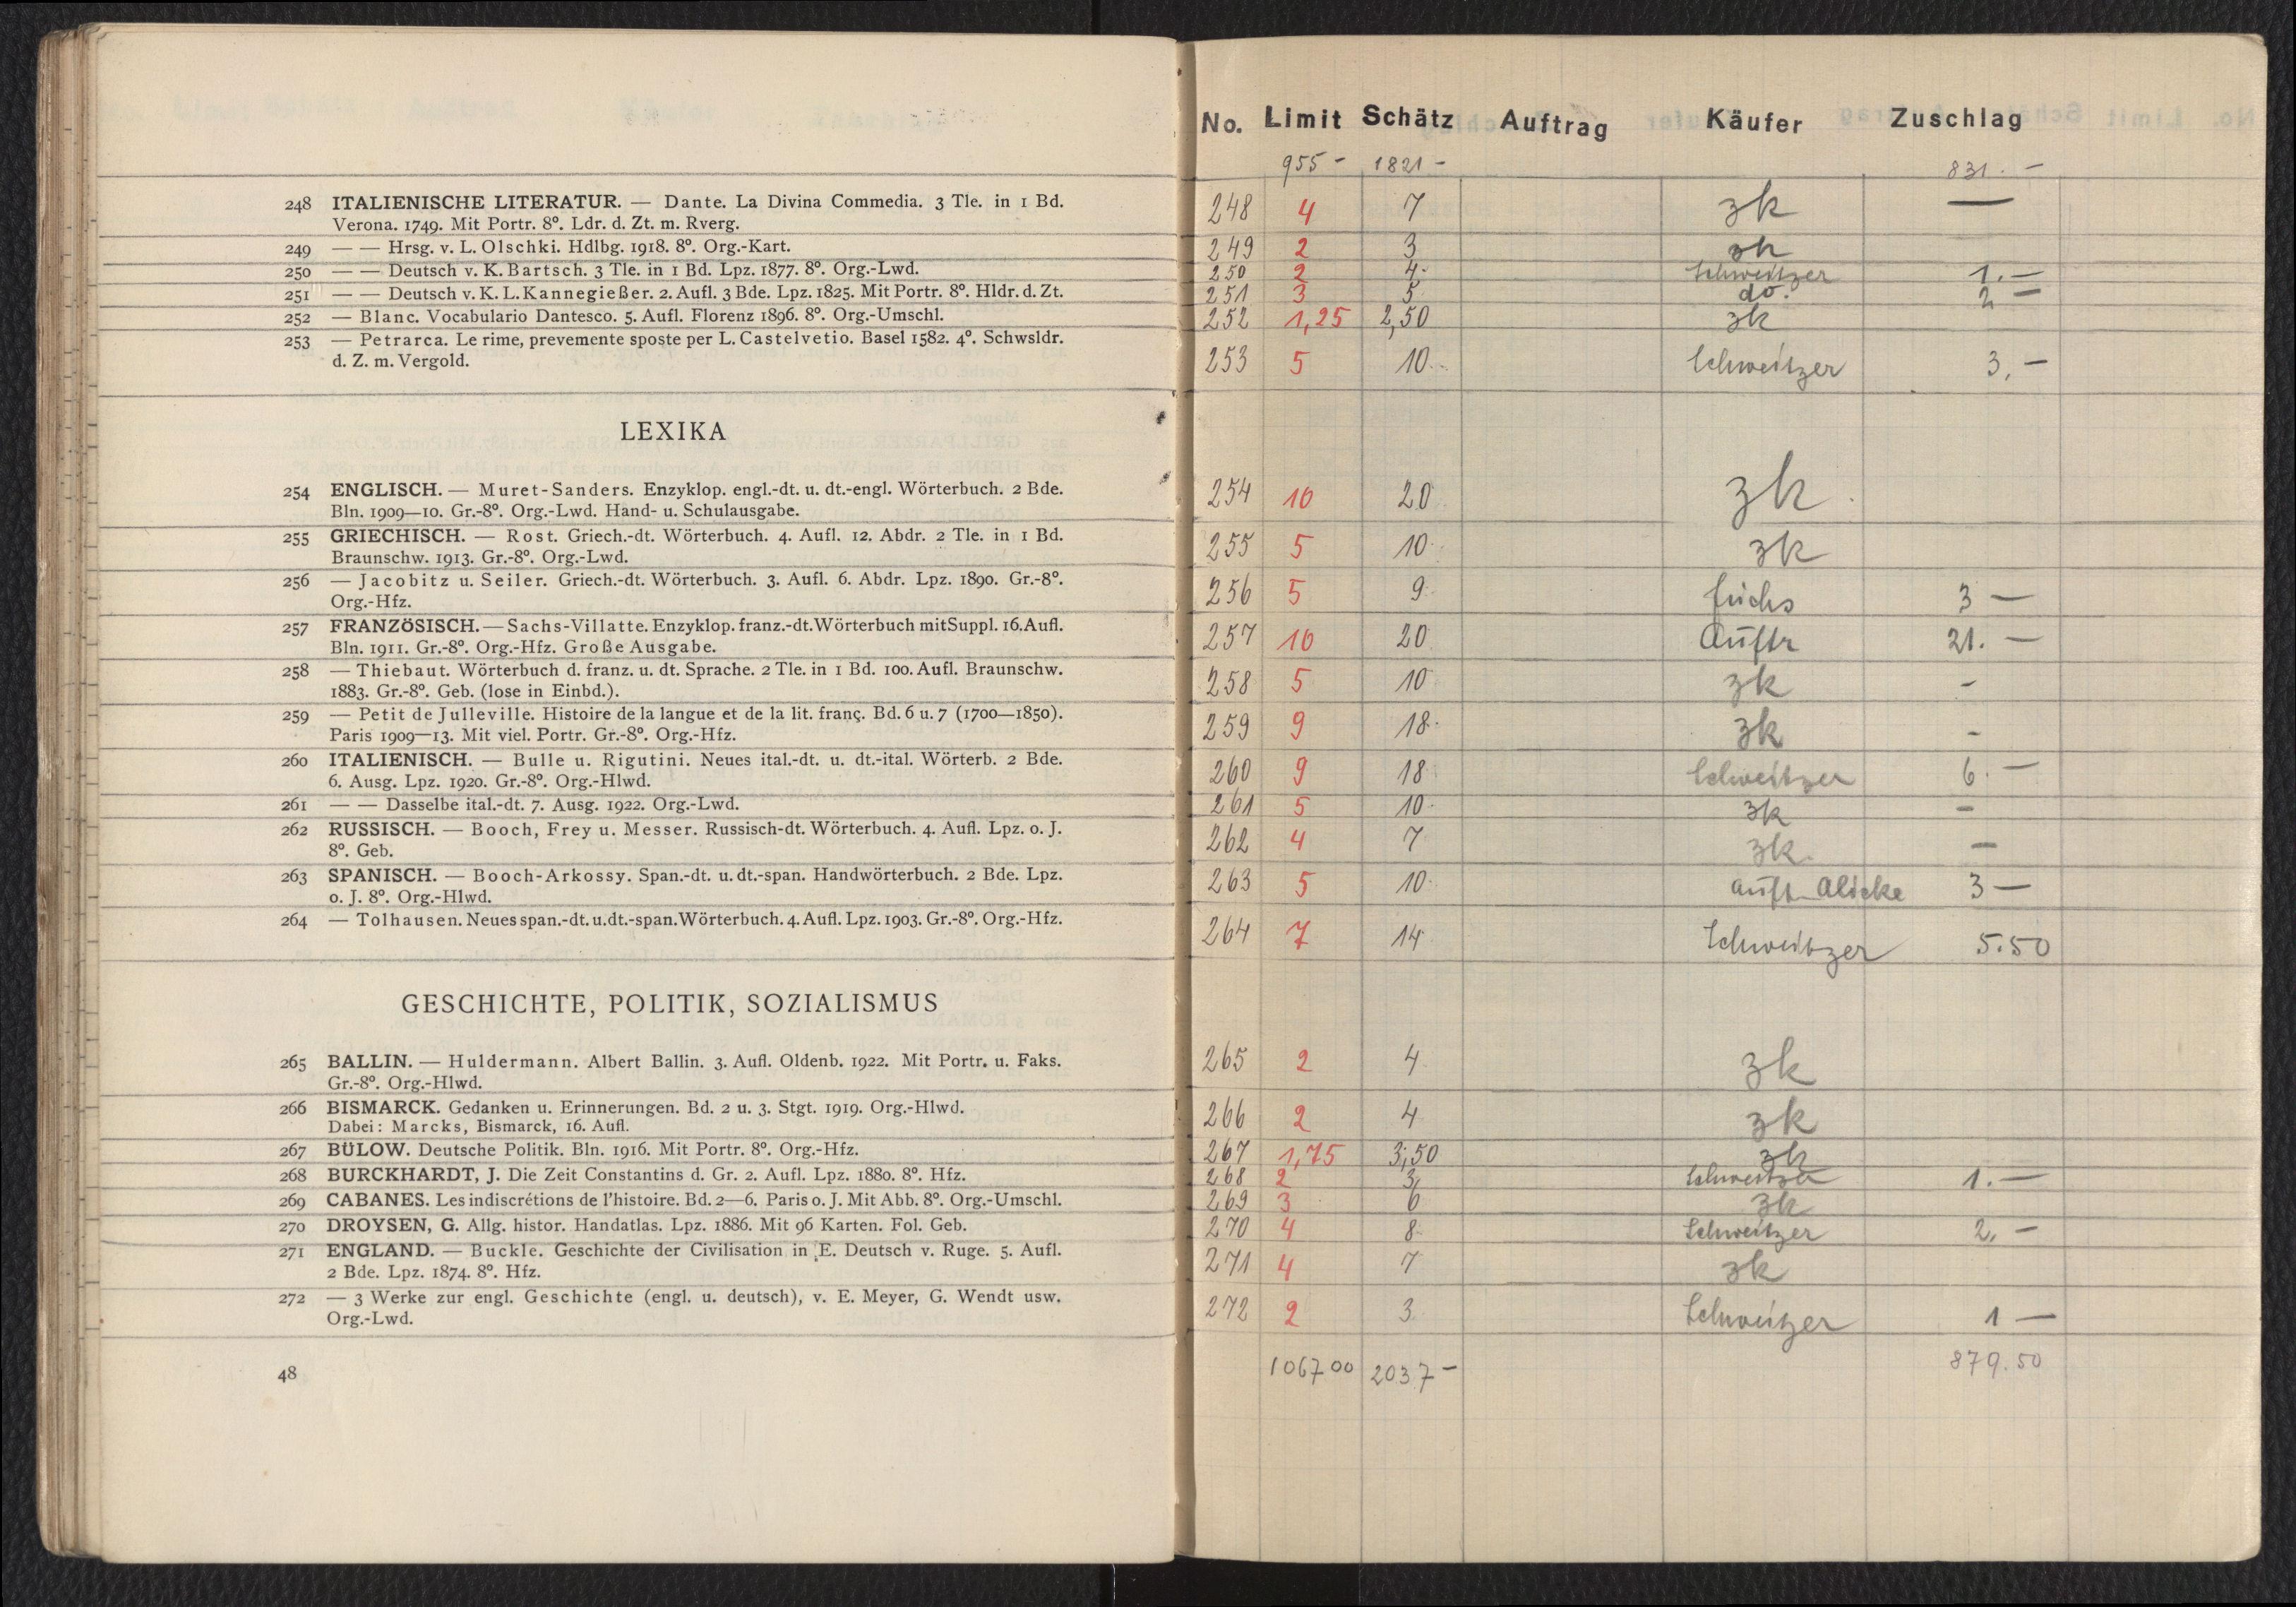 248 ITALIENISCHE LITERATUR. — Dante. La Divina Commedia. 3 Tle. in 1 Bd.
Verona. 1749. Mit Portr. 8°. Ldr. d. Zt. m. Rverg.
249 — — Hrsg. v. L. Olschki. Hdlbg. 1918. 8°. Org.-Kart.
250 — — Deutsch v. K. Bartsch. 3 Tle. in 1 Bd. Lpz. 1877. 8°. Org.-Lwd.
251 — — Deutsch v. K. L. Kannegießer. 2. Aufl. 3 Bde. Lpz. 1825. Mit Portr. 8°. Hldr. d. Zt.
252 — Blanc. Vocabulario Dantesco. 5. Aufl. Florenz 1896. 8°. Org.-Umschl.
253 — Petrarca. Le rime, prevemente sposte per L. Castelvetio. Basel 1582. 4°. Schwsldr.
d. Z. m. Vergold.
LEXIKA
254 ENGLISCH. — Muret-Sanders. Enzyklop. engl.-dt. u. dt.-engl. Wörterbuch. 2 Bde.
Bln. 1909—10. Gr.-8°. Org.-Lwd. Hand- u. Schulausgabe.
255 GRIECHISCH. — Rost. Griech.-dt. Wörterbuch. 4. Aufl. 12. Abdr. 2 Tle. in 1 Bd.
Braunschw. 1913. Gr.-8°. Org.-Lwd.
256 — Jacobitz u. Seiler. Griech.-dt. Wörterbuch. 3. Aufl. 6. Abdr. Lpz. 1890. Gr.-8°.
Org.-Hfz.
257 FRANZÖSISCH. — Sachs-Villatte. Enzyklop. franz.-dt. Wörterbuch mit Suppl. 16. Aufl.
Bln. 1911. Gr.-8°. Org.-Hfz. Große Ausgabe.
258 — Thiebaut. Wörterbuch d. franz. u. dt. Sprache. 2 Tle. in 1 Bd. 100. Aufl. Braunschw.
1883. Gr.-8°. Geb. (lose in Einbd.).
259 — Petit de Julleville. Histoire de la langue et de la lit. franç. Bd. 6 u. 7 (1700—1850).
Paris 1909—13. Mit viel. Portr. Gr.-8°. Org.-Hfz.
260 ITALIENISCH. — Bulle u. Rigutini. Neues ital.-dt. u. dt.-ital. Wörterb. 2 Bde.
6. Ausg. Lpz. 1920. Gr.-8°. Org.-Hlwd.
261 — — Dasselbe ital.-dt. 7. Ausg. 1922. Org.-Lwd.
262 RUSSISCH. — Booch, Frey u. Messer. Russisch-dt. Wörterbuch. 4. Aufl. Lpz. o. J.
8°. Geb.
263 SPANISCH. — Booch-Arkossy. Span.-dt. u. dt.-span. Handwörterbuch. 2 Bde. Lpz.
o. J. 8°. Org.-Hlwd.
264 — Tolhausen. Neues span.-dt. u. dt.-span. Wörterbuch. 4. Aufl. Lpz. 1903. Gr.-8°. Org.-Hfz.
GESCHICHTE, POLITIK, SOZIALISMUS
265 BALLIN. — Huldermann. Albert Ballin. 3. Aufl. Oldenb. 1922. Mit Portr. u. Faks.
Gr.-8°. Org.-Hlwd.
266 BISMARCK. Gedanken u. Erinnerungen. Bd. 2 u. 3. Stgt. 1919. Org.-Hlwd.
Dabei: Marcks, Bismarck, 16. Aufl.
267 BÜLOW. Deutsche Politik. Bln. 1916. Mit Portr. 8°. Org.-Hfz.
268 BURCKHARDT, J. Die Zeit Constantins d. Gr. 2. Aufl. Lpz. 1880. 8°. Hfz.
269 CABANES. Les indiscrétions de l'histoire. Bd. 2—6. Paris o. J. Mit Abb. 8°. Org.-Umschl.
270 DROYSEN, G. Allg. histor. Handatlas. Lpz. 1886. Mit 96 Karten. Fol. Geb.
271 ENGLAND. — Buckle. Geschichte der Civilisation in E. Deutsch v. Ruge. 5. Aufl.
2 Bde. Lpz. 1874. 8°. Hfz.
272 — 3 Werke zur engl. Geschichte (engl. u. deutsch), v. E. Meyer, G. Wendt usw.
Org.-Lwd.
48
No. Limit Schätz Auftrag Käufer Zuschlag
955 - 1821 - 831. -
248 4 7 zk —
249 2 3 zk
250 2 4 Schweitzer 1. —
251 3 5 do. 2 —
252 1,25 2,50 zk
253 5 10 Schweitzer 3, —
254 10 20 zk
255 5 10 zk
256 5 9 Fuchs 3 —
257 10 20 Auftr 21. —
258 5 10 zk -
259 9 18 zk -
260 9 18 Schweitzer 6. —
261 5 10 zk —
262 4 7 zk —
263 5 10 Auft Alicke 3 —
264 7 14 Schweitzer 5.50
265 2 4 zk
266 2 4 zk
267 1,75 3,50 zk
268 2 3 Schweitzer 1. —
269 3 6 zk
270 4 8 Schweitzer 2, —
271 4 7 zk
272 2 3 Schweitzer 1 —
1067 00 2037 - 879.50